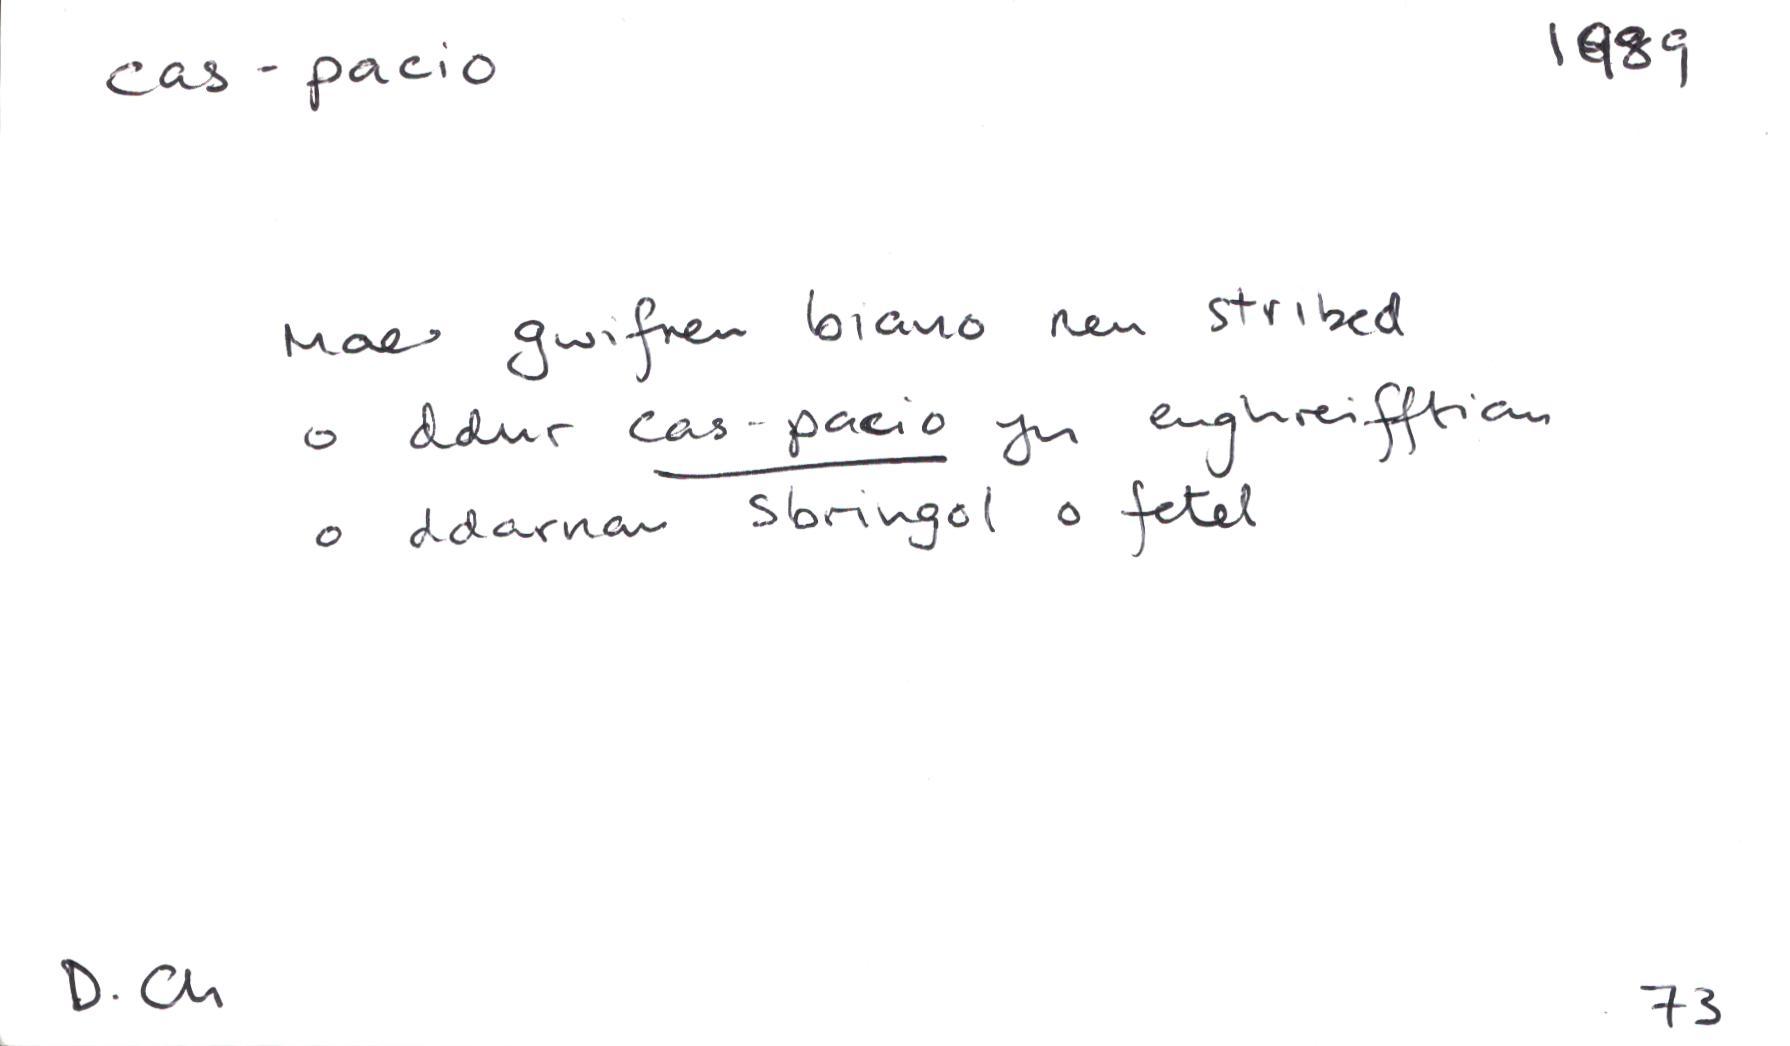 cas-pacio 1989
Mae gwifren biano neu stribed
o ddur cas-pacio yn enghreifftiau
o ddarnau sbringol o fetel
D. Ch 73